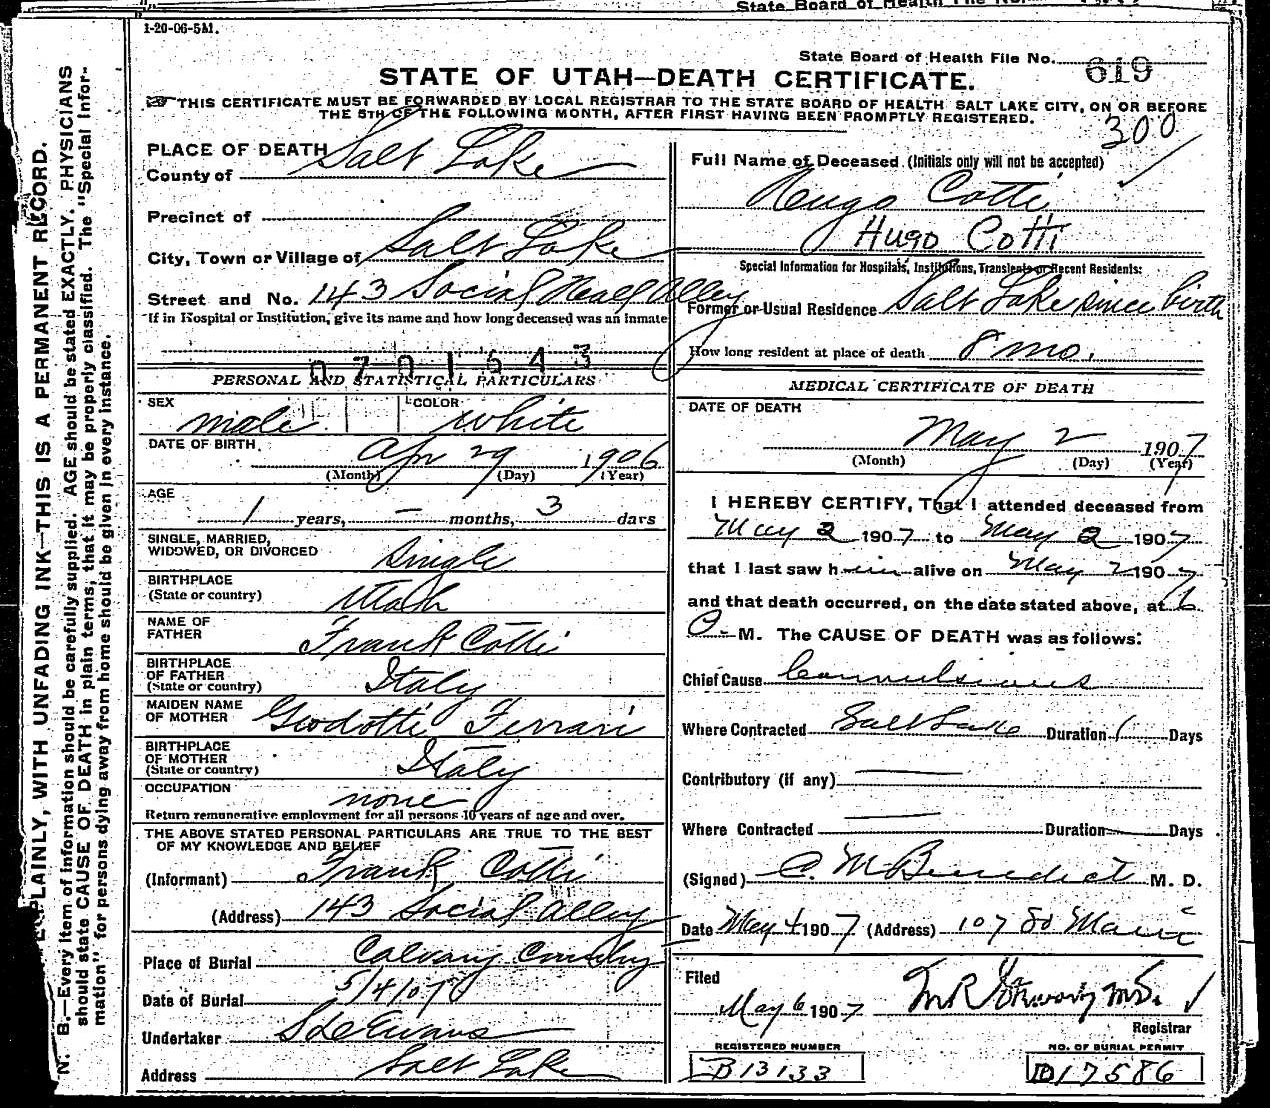 State Board of Health File No.
1-20-06-5M.
State Board of Health File No. 619
STATE OF UTAH—DEATH CERTIFICATE.
THIS CERTIFICATE MUST BE FORWARDED BY LOCAL REGISTRAR TO THE STATE BOARD OF HEALTH SALT LAKE CITY, ON OR BEFORE
THE 5TH OF THE FOLLOWING MONTH, AFTER FIRST HAVING BEEN PROMPTLY REGISTERED.
300
PLACE OF DEATH
County of Salt Lake
Precinct of
City, Town or Village of Salt Lake
Street and No. 143 Social Hall Alley
If in Hospital or Institution, give its name and how long deceased was an inmate
0701643
PERSONAL AND STATISTICAL PARTICULARS
SEX male COLOR white
DATE OF BIRTH
Apr 29 1906
(Month) (Day) (Year)
AGE
1 years, — months, 3 days
SINGLE, MARRIED,
WIDOWED, OR DIVORCED Single
BIRTHPLACE
(State or country) Utah
NAME OF
FATHER Frank Cotti
BIRTHPLACE
OF FATHER
(State or country) Italy
MAIDEN NAME
OF MOTHER Ferrari
BIRTHPLACE
OF MOTHER
(State or country) Italy
OCCUPATION none
Return remunerative employment for all persons 10 years of age and over.
THE ABOVE STATED PERSONAL PARTICULARS ARE TRUE TO THE BEST
OF MY KNOWLEDGE AND BELIEF
(Informant) Frank Cotti
(Address) 143 Social Alley
Place of Burial Calvary
Date of Burial 5/4/07
Undertaker Evans
Address Salt Lake
Full Name of Deceased (Initials only will not be accepted)
Hugo Cotti
Hugo Cotti
Special Information for Hospitals, Institutions, Transients or Recent Residents:
Former or Usual Residence Salt Lake since birth
How long resident at place of death 8 mo.
MEDICAL CERTIFICATE OF DEATH
DATE OF DEATH
May 2 1907
(Month) (Day) (Year)
I HEREBY CERTIFY, That I attended deceased from
May 2 1907 to May 2 1907
that I last saw him alive on May 2 1907
and that death occurred, on the date stated above, at 6
P. M. The CAUSE OF DEATH was as follows:
Chief Cause Convulsions
Where Contracted Salt Lake Duration 1 Days
Contributory (if any) —
Where Contracted — Duration — Days
(Signed) C. M. Benedict M. D.
Date May 4 1907 (Address) 107 So Main
Filed
May 6 1907 M R M.D.
Registrar
REGISTERED NUMBER
B13133
NO. OF BURIAL PERMIT
D17586
PLAINLY, WITH UNFADING INK—THIS IS A PERMANENT RECORD.
N. B.—Every item of information should be carefully supplied. AGE should be stated EXACTLY. PHYSICIANS
should state CAUSE OF DEATH in plain terms, that it may be properly classified. The "Special Infor-
mation" for persons dying away from home should be given in every instance.